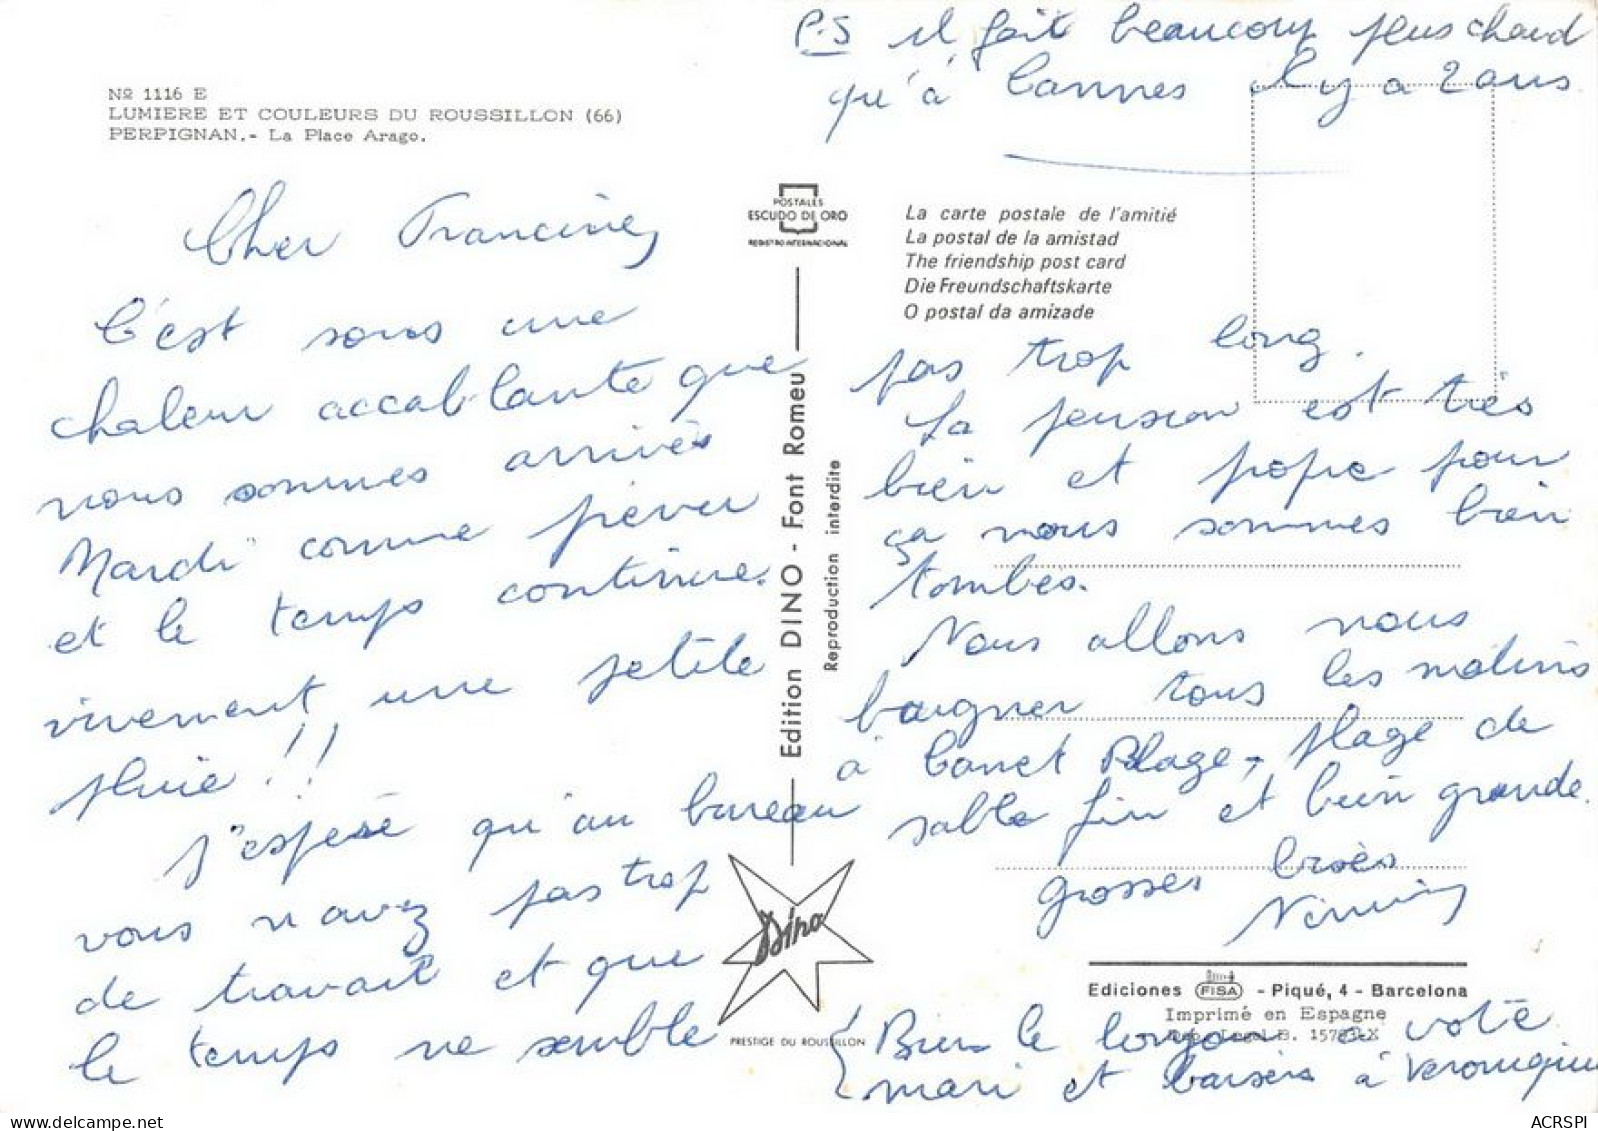 P.S il fait beaucoup plus chaud
qu'à Cannes il y a 2 ans
Nº 1116 E
LUMIERE ET COULEURS DU ROUSSILLON (66)
PERPIGNAN.- La Place Arago.
Cher Francine,
C'est sous une
chaleur accablante que
nous sommes arrivés
Mardi comme prévu
et le temps continue.
vivement une petite
pluie !!
J'espère qu'au bureau
vous n'avez pas trop
de travail et que
le temps ne semble
POSTALES
ESCUDO DE ORO
REGISTRO INTERNACIONAL
Edition DINO - Font Romeu
Reproduction interdite
Dino
PRESTIGE DU ROUSSILLON
La carte postale de l'amitié
La postal de la amistad
The friendship post card
Die Freundschaftskarte
O postal da amizade
pas trop long.
La pension est très
bien et propre pour
ça nous sommes bien
tombés.
Nous allons nous
baigner tous les matins
à Canet Plage, plage de
sable fin et bien grande.
grosses bises
Ediciones FISA - Piqué, 4 - Barcelona
Imprimé en Espagne
Dep. Legal B. 15793-X
Bien le bonjour a votre
mari et baisers à Veronique
ACRSPI